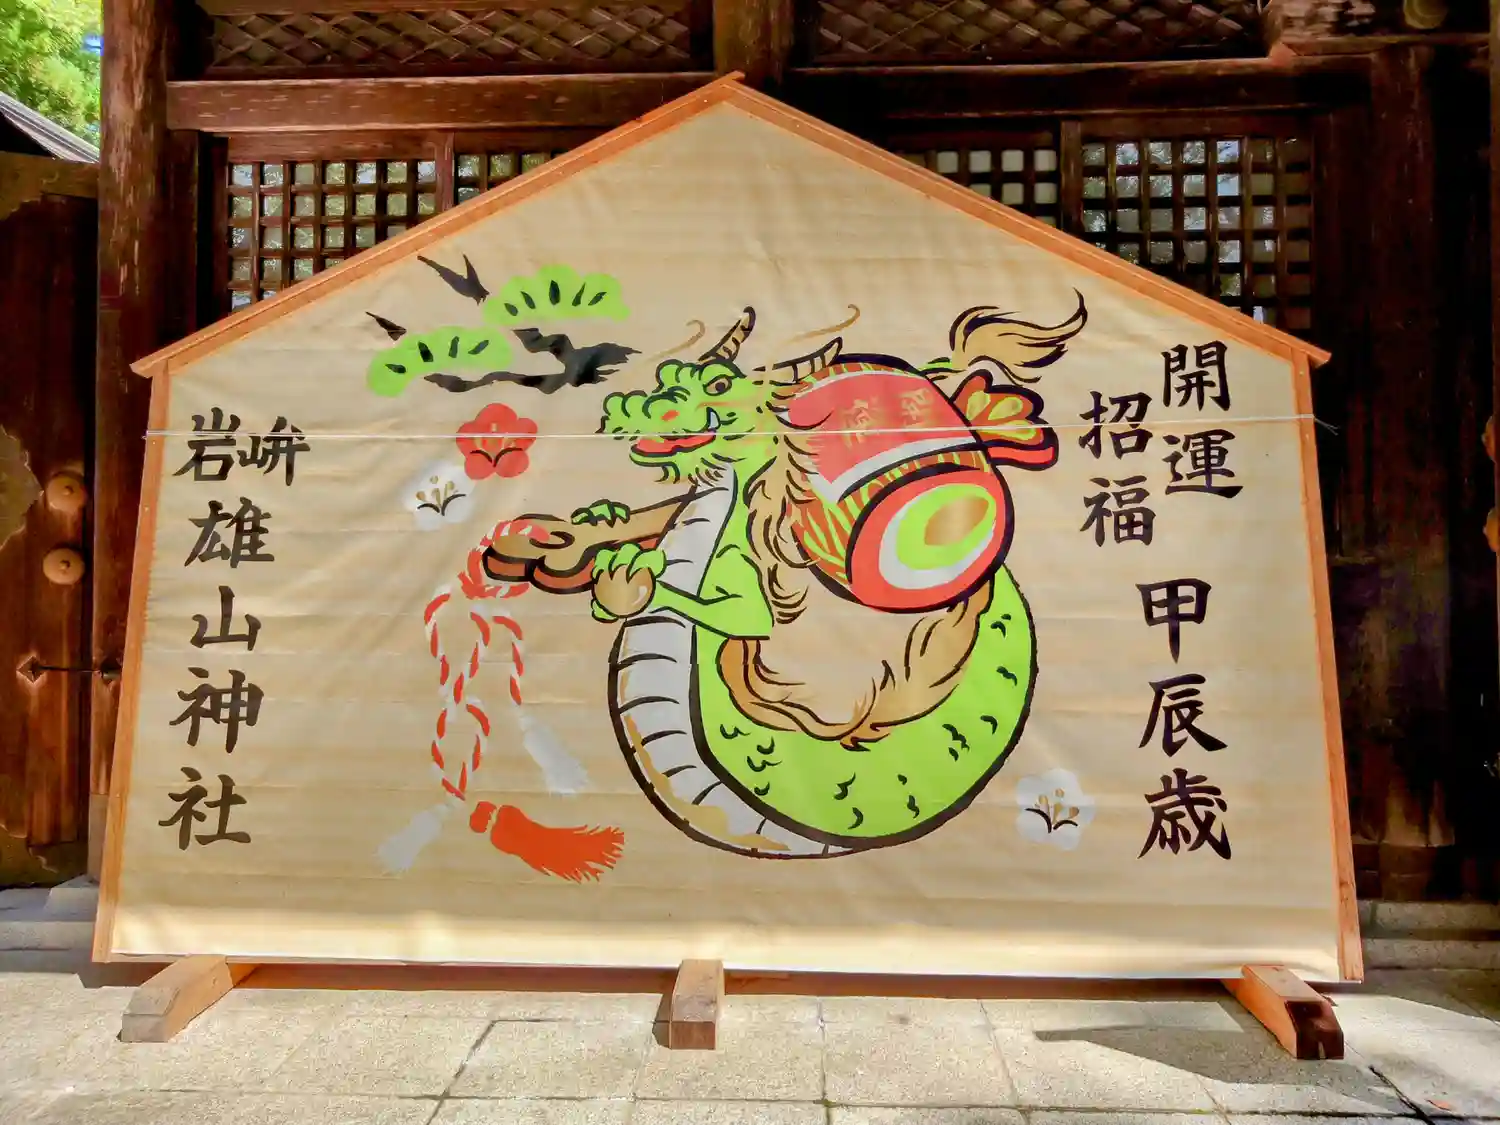 開運
招福
甲辰歳
岩峅雄山神社